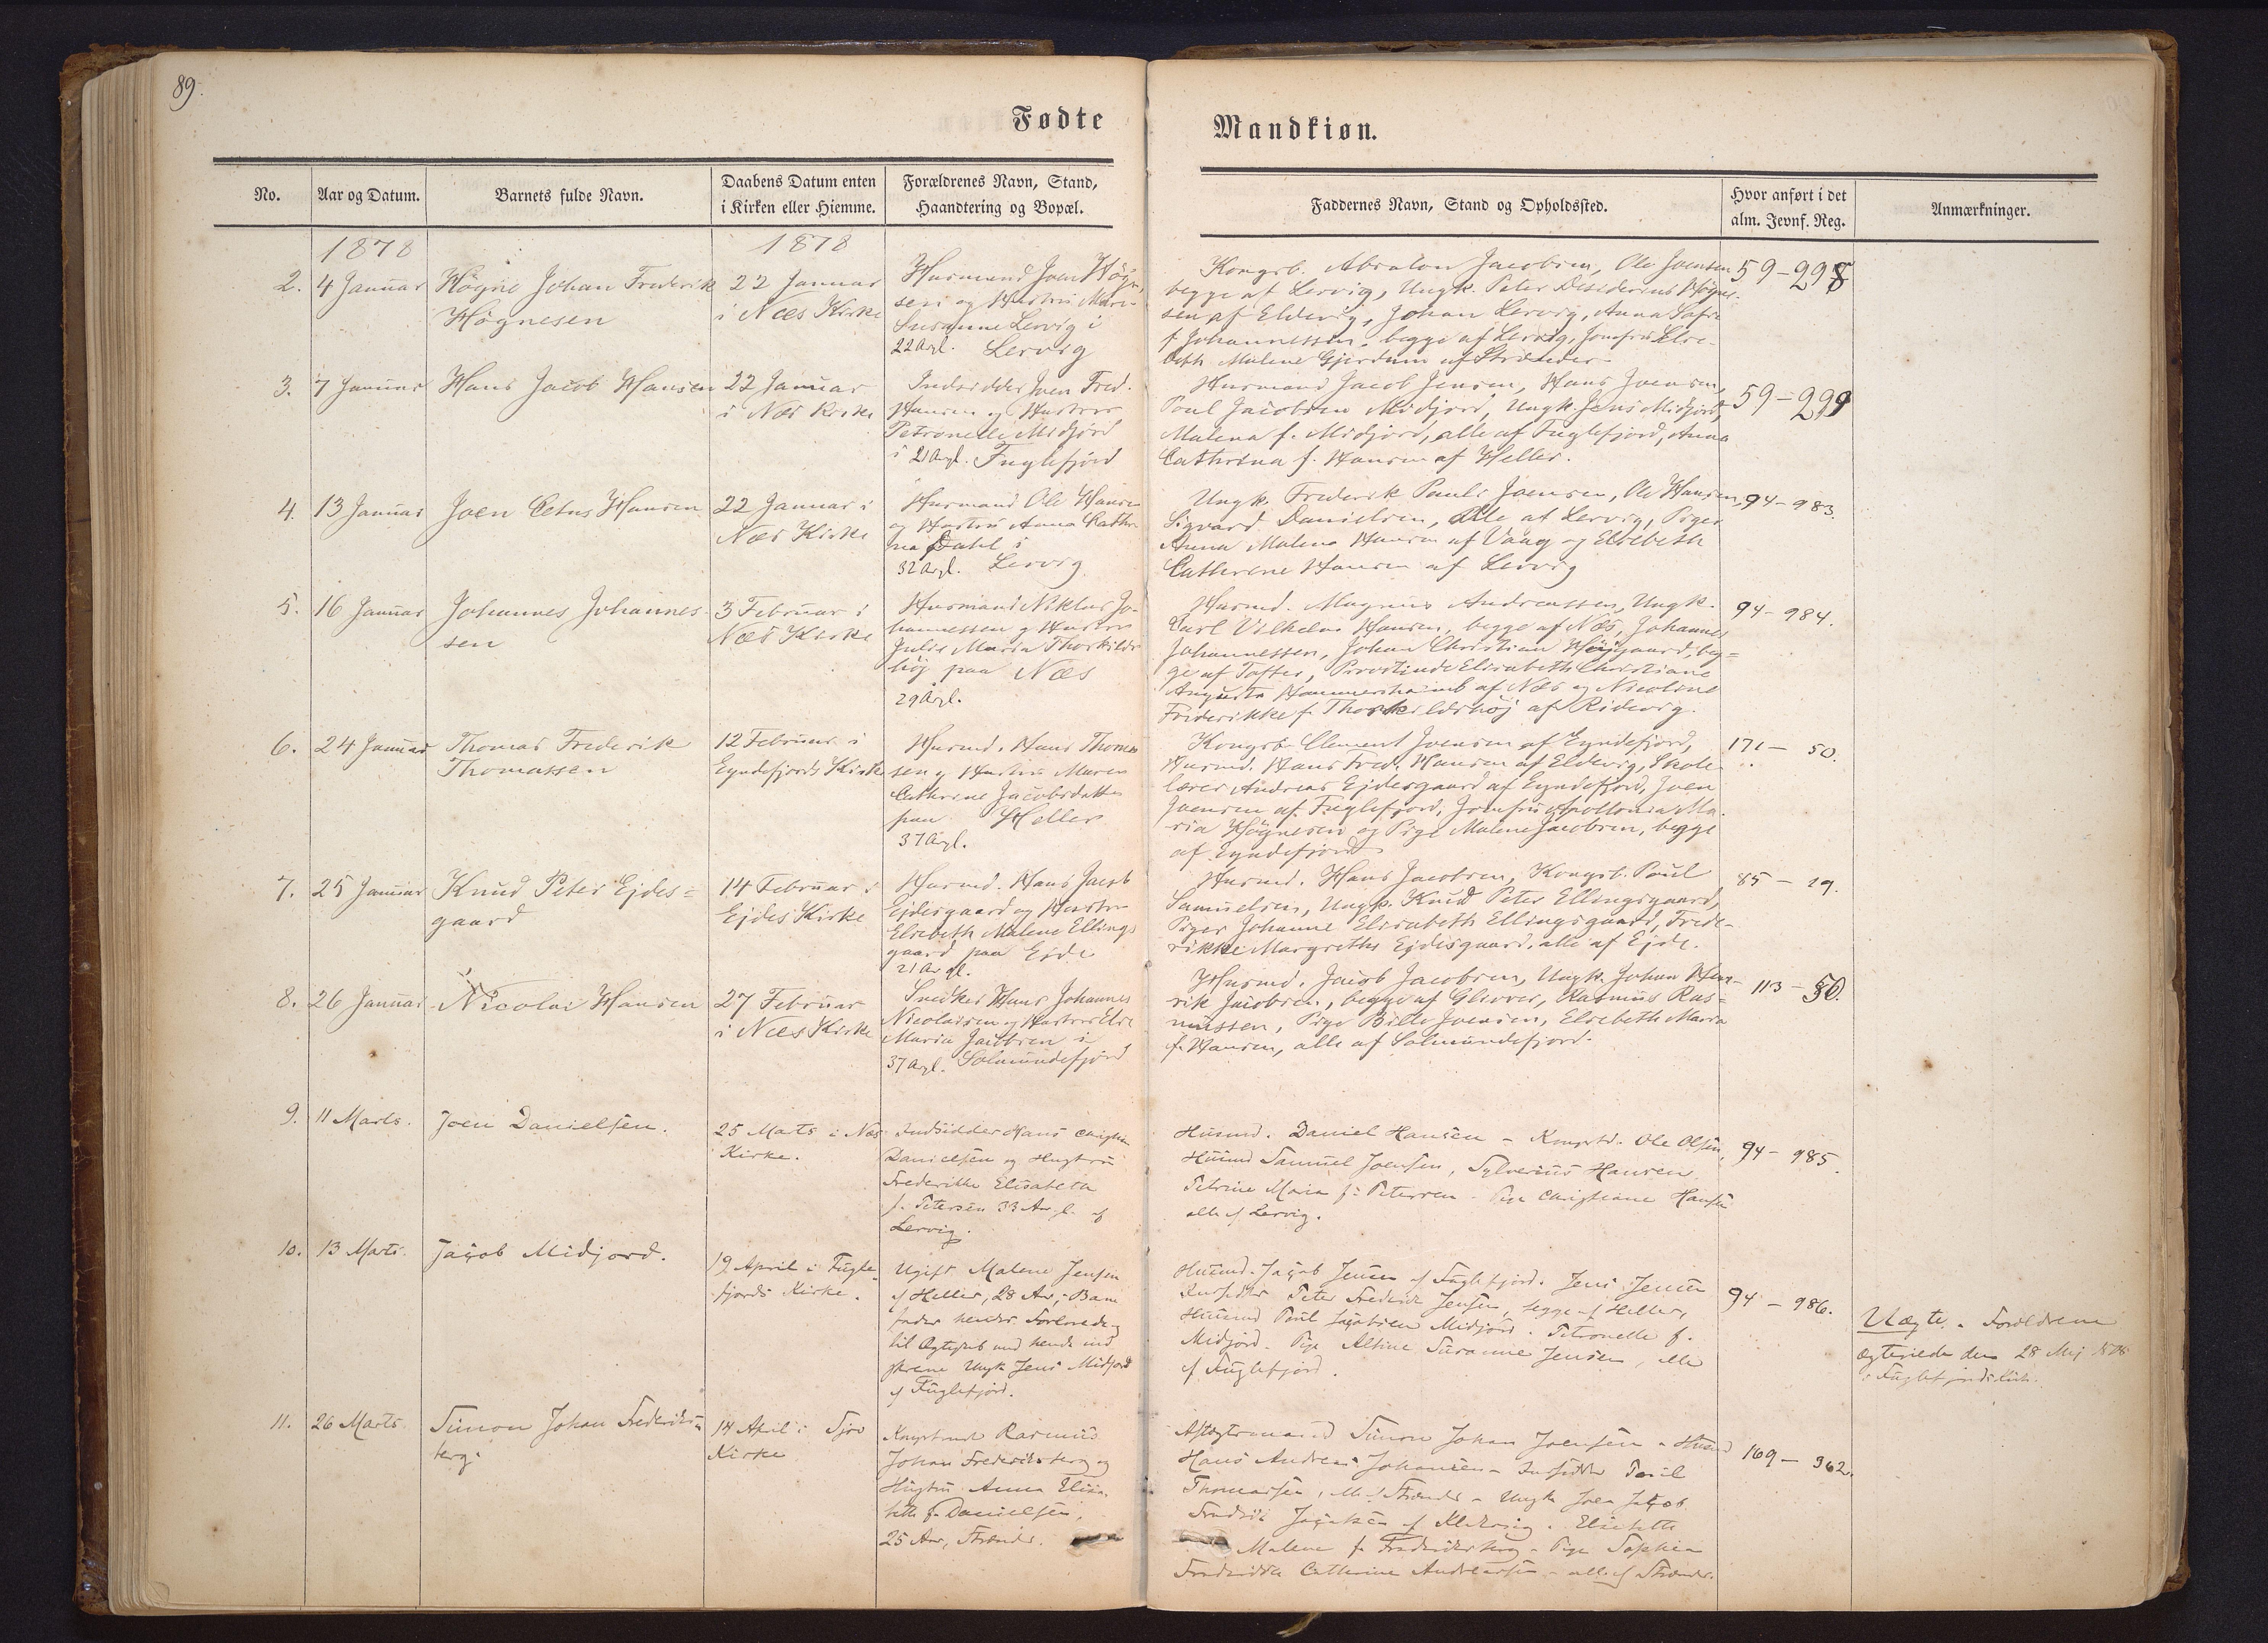 89.
Fødte
Mandkiøn.
No.
Aar og Datum.
Barnets fulde Navn.
Daabens Datum enten
i Kirken eller Hiemme.
Forældrenes Navn, Stand,
Haandtering og Bopæl.
Faddernes Navn, Stand og Opholdssted.
Hvor anført i det
alm. Jevnf. Reg.
Anmærkninger.
1878
1878
2.
4 Januar
Högne Johan Frederik
Högnesen
22 Januar
i Næs Kirke
Husmand Joen Högne
sen og Hustru
Susanne Lervig i
22 Argl. Lervig
Kongsb. Absalon Jacobsen, Ole Joensen
begge af Lervig, Ungk. Peter Desiderius Högne-
sen af Eldevig, Johan Lervig, Anna Sofie
f. Johannessen, begge af Lervig, Jomfru Else-
beth Malene Gjerdum af Strænder.
59-298
3.
7 Januar
Hans Jacob Hansen
22 Januar
i Næs Kirke
Indsidder Joen Fred.
Hansen og Hustru
Petronelle Midjord
i 21 Argl. Fuglefjord
Husmand Jacob Jensen, Hans Joensen,
Poul Jacobsen Midjord, Ungk. Jens Midjord,
Malena f. Midjord, alle af Fuglefjord, Anna
Cathrina f. Hansen af Heller.
59-299
4.
13 Januar
Joen Hansen
22 Januar i
Næs Kirke
Husmand Ole Hansen
og Hustru Anna Cathri
na Dahl i
32 Argl. Lervig
Ungk. Frederik Pauli Joensen, Ole Hansen,
Sigvard Danielsen, alle af Lervig, Piger
Anna Malena Hansen af Vaag og Elsebeth
Cathrine Hansen af Lervig
94-983.
5.
16 Januar
Johannes Johannes-
sen
3 Februar i
Næs Kirke
Husmand Niklas Jo-
hannessen og Hustru
Julie Maria Thorkilds
höj paa Næs
29 Argl.
Husmd. Magnus Andreassen, Ungk.
Carl Vilhelm Hansen, begge af Næs, Johannes
Johannessen, Johan Christian Höjgaard, beg=
ge af Tofter, Provstinde Elisabeth Christiane
Augusta Hammershaimb af Næs og Nicoline
Frederikke f. Thorkildshöj af Ridevig.
94-984.
6.
24 Januar
Thomas Frederik
Thomassen
12 Februar i
Eyndefjords Kirke
Husmd. Hans Thomas
sen og Hustru Maren
Cathrine Jacobsdatter
paa Heller
37 Argl.
Kongsb. Clement Joensen af Eyndefjord,
Husmd. Hans Fred. Hansen af Eldevig, Skole
lærer Andreas Ejdesgaard af Eyndefjord, Joen
Joensen af Fuglefjord, Jomfru Apollonia Ma-
ria Högnesen og Pige Malene Jacobsen, begge
af Eyndefjord
171- 50.
7.
25 Januar
Knud Peter Ejdes=
gaard
14 Februar i
Ejdes Kirke
Husmd. Hans Jacob
Ejdesgaard og Hustru
Elsebeth Malene Ellings
gaard paa Ejde
21 Argl.
Husmd. Hans Jacobsen, Kongsb. Poul
Samuelsen, Ungk. Knud Peter Ellingsgaard,
Piger Johanne Elisabeth Ellingsgaard, Frede-
rikke Margrethe Ejdesgaard, alle af Ejde.
85-19.
8.
26 Januar
Nicolai Hansen
27 Februar
i Næs Kirke
Snedker Hans Johannes
Nicolaisen og Hustru Else
Maria Jacobsen i
37 Argl. Solmundefjord
Husmd. Jacob Jacobsen, Ungk. Johan Hen-
rik Jacobsen, begge af Glivver, Rasmus Ras=
mussen, Pige Bille Joensen, Elsebeth Maria
f. Hansen, alle af Solmundefjord.
113-50.
9.
11 Marts.
Joen Danielsen.
25 Marts i Næs
Kirke.
Indsidder Hans
Danielsen og Hustru
Frederikke Elisabeth
f. Petersen 33 Ar gl. af
Lervig.
Husmd. Daniel Hansen - Kongsbd. Ole Olsen,
Husmd Samuel Joensen, Sylverius Hansen
Petrine Maria f. Petersen - Pige Christiane Hansen
alle af Lervig.
94-985.
10.
13 Marts.
Jacob Midjord.
19 April i Fugle-
fjords Kirke.
Ugift Malene Jensen
af Heller, 28 Ar, - Barne
fader hendes Forlovede og
til Ægteskab med hende ind
skrevne Ungk Jens Midjord
af Fuglefjord.
Husmd. Jacob Jensen af Fuglefjord. Jens Jensen
Peter Frederik Jensen, begge af Heller,
Husmd Poul Jacobsen Midjord. Petronelle f.
Midjord. Pige Susanne Jensen, alle
af Fuglefjord.
94-986.
Uægte. - Forældrene
ægteviede den 28 Mej 1878
i Fuglefjords Kirke.
11.
26 Marts
Simon Johan Frederiks-
berg.
14 April i
Kirke
Kongsbonde Rasmus
Johan Frederiksberg og
Hustru Anna Elisa
beth f. Danielsen,
25 Aar, Strænder.
Aftægtsmand Simon Johan Joensen - Husmd
Hans Andreas Johansen - Indsidder Poul
Thomassen, alle af Strænder - Ungk Joen Jacob
Fredrik Jacobsen af Klaksvig. Elsebeth
Malene f. Frederiksberg - Pige Sophia
Fredrikka Cathrine Andreassen - alle af Strænder.
169-362.